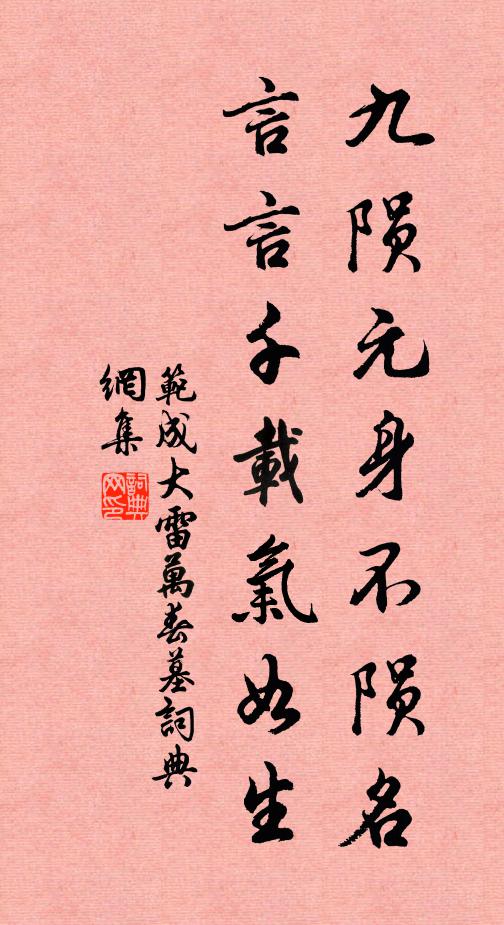 九陨元身不陨名
言言千載氣如生
範成大雷萬春墓詞典
網集
詞典網印